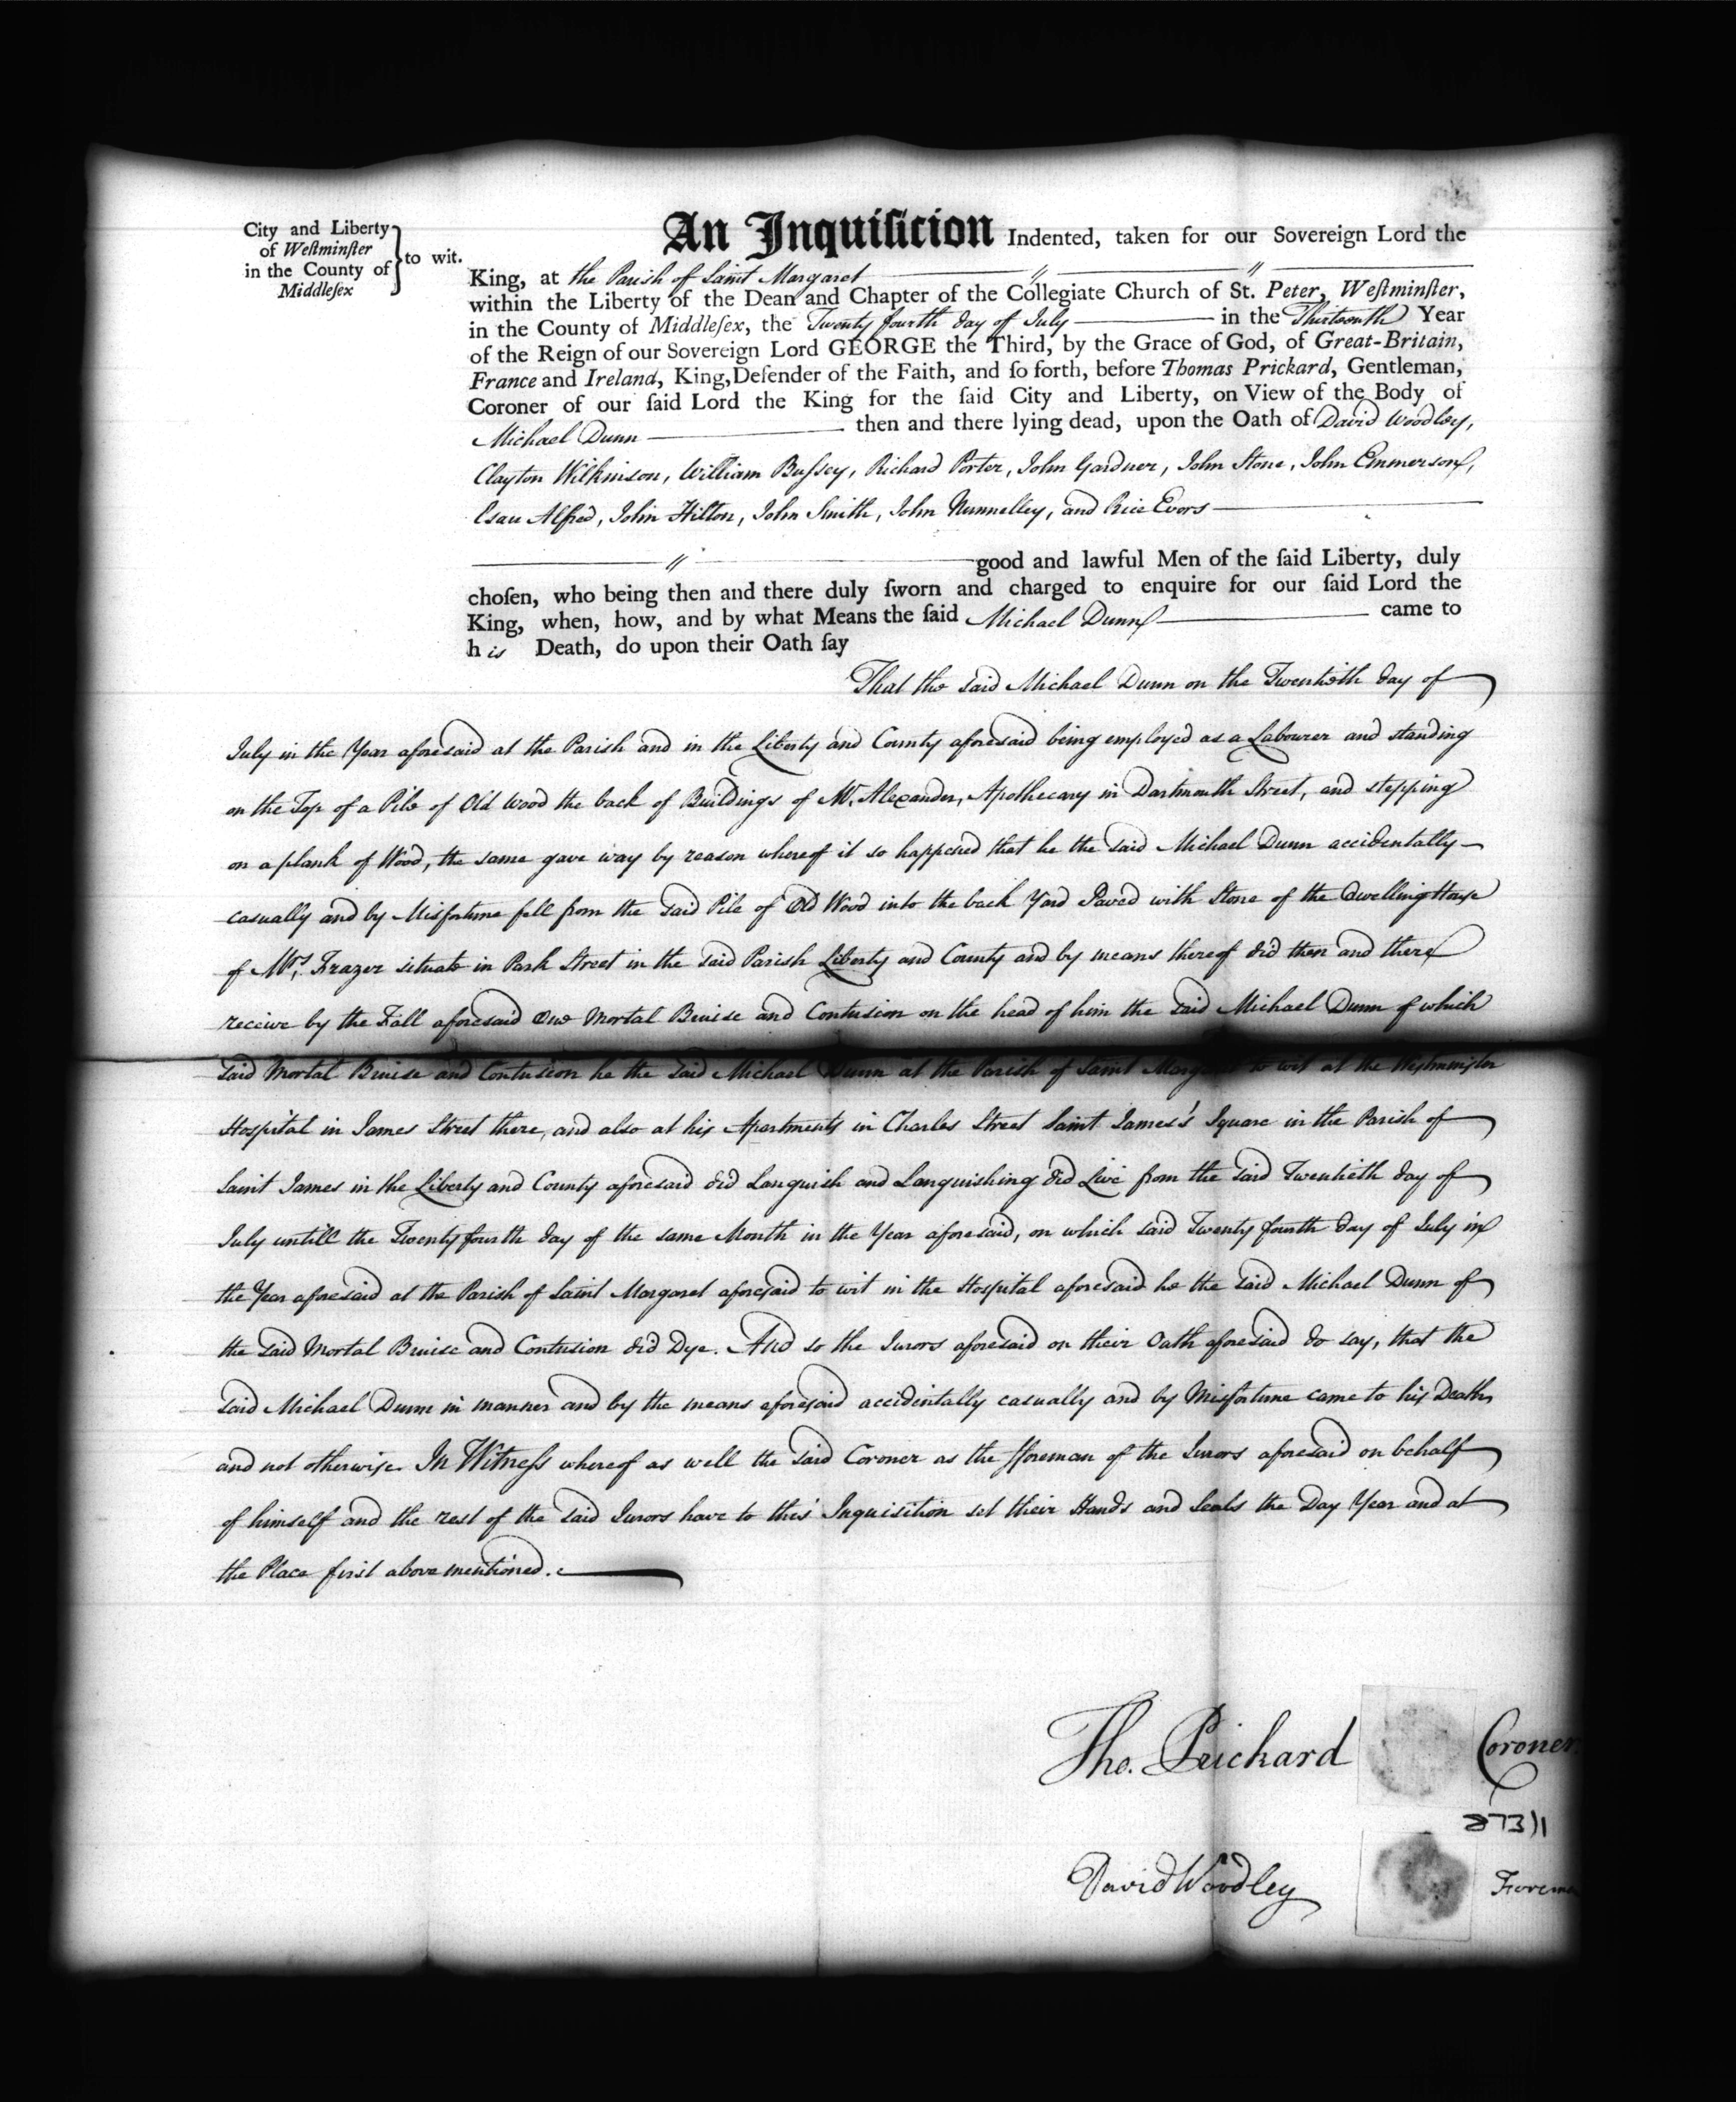 City and Liberty
of Weſtminſter
in the County of
Middleſex
to wit.
An Inquiſition Indented, taken for our Sovereign Lord the
King, at the Parish of Saint Margaret
within the Liberty of the Dean and Chapter of the Collegiate Church of St. Peter, Weſtminſter,
in the County of Middleſex, the Twenty fourth day of July in the Thirteenth Year
of the Reign of our Sovereign Lord GEORGE the Third, by the Grace of God, of Great-Britain,
France and Ireland, King, Defender of the Faith, and ſo forth, before Thomas Prickard, Gentleman,
Coroner of our ſaid Lord the King for the ſaid City and Liberty, on View of the Body of
Michael Dunn then and there lying dead, upon the Oath of David Woodley,
Clayton Wilkinson, William Buſsey, Richard Porter, John Gardner, John Stone, John Emmerson,
Esau Alfred, John Hilton, John Smith, John Nunnelley, and Rice Evors
good and lawful Men of the ſaid Liberty, duly
choſen, who being then and there duly ſworn and charged to enquire for our ſaid Lord the
King, when, how, and by what Means the ſaid Michael Dunn came to
his Death, do upon their Oath ſay
That the said Michael Dunn on the Twentieth day of
July in the Year aforesaid at the Parish and in the Liberty and County aforesaid being employed as a Labourer and standing
on the Top of a Pile of Old Wood the back of Buildings of Mr. Alexander, Apothecary in Dartmouth Street, and stepping
on a plank of Wood, the same gave way by reason whereof it so happened that he the said Michael Dunn accidentally
casually and by Misfortune fell from the said Pile of Old Wood into the back Yard Paved with Stone of the Dwelling House
of Mrs. Frazer situate in Park Street in the said Parish Liberty and County and by means thereof did then and there
receive by the Fall aforesaid One Mortal Bruise and Contusion on the head of him the said Michael Dunn of which
said Mortal Bruise and Contusion he the said Michael Dunn at the Parish of Saint Margaret to wit at the Westminster
Hospital in James Street there, and also at his Apartments in Charles Street Saint James's Square in the Parish of
Saint James in the Liberty and County aforesaid did Languish and Languishing did Live from the said Twentieth day of
July untill the Twenty fourth day of the same Month in the Year aforesaid, on which said Twenty fourth day of July in
the Year aforesaid at the Parish of Saint Margaret aforesaid to wit in the Hospital aforesaid he the said Michael Dunn of
the said Mortal Bruise and Contusion did Dye. And so the Jurors aforesaid on their Oath aforesaid do say, that the
said Michael Dunn in manner and by the means aforesaid accidentally casually and by Misfortune came to his Death
and not otherwise. In Witneſs whereof as well the said Coroner as the fforeman of the Jurors aforesaid on behalf
of himself and the rest of the said Jurors have to this Inquisition set their Hands and Seals the Day Year and at
the Place first above mentioned.
Tho. Prickard Coroner
David Woodley Foreman